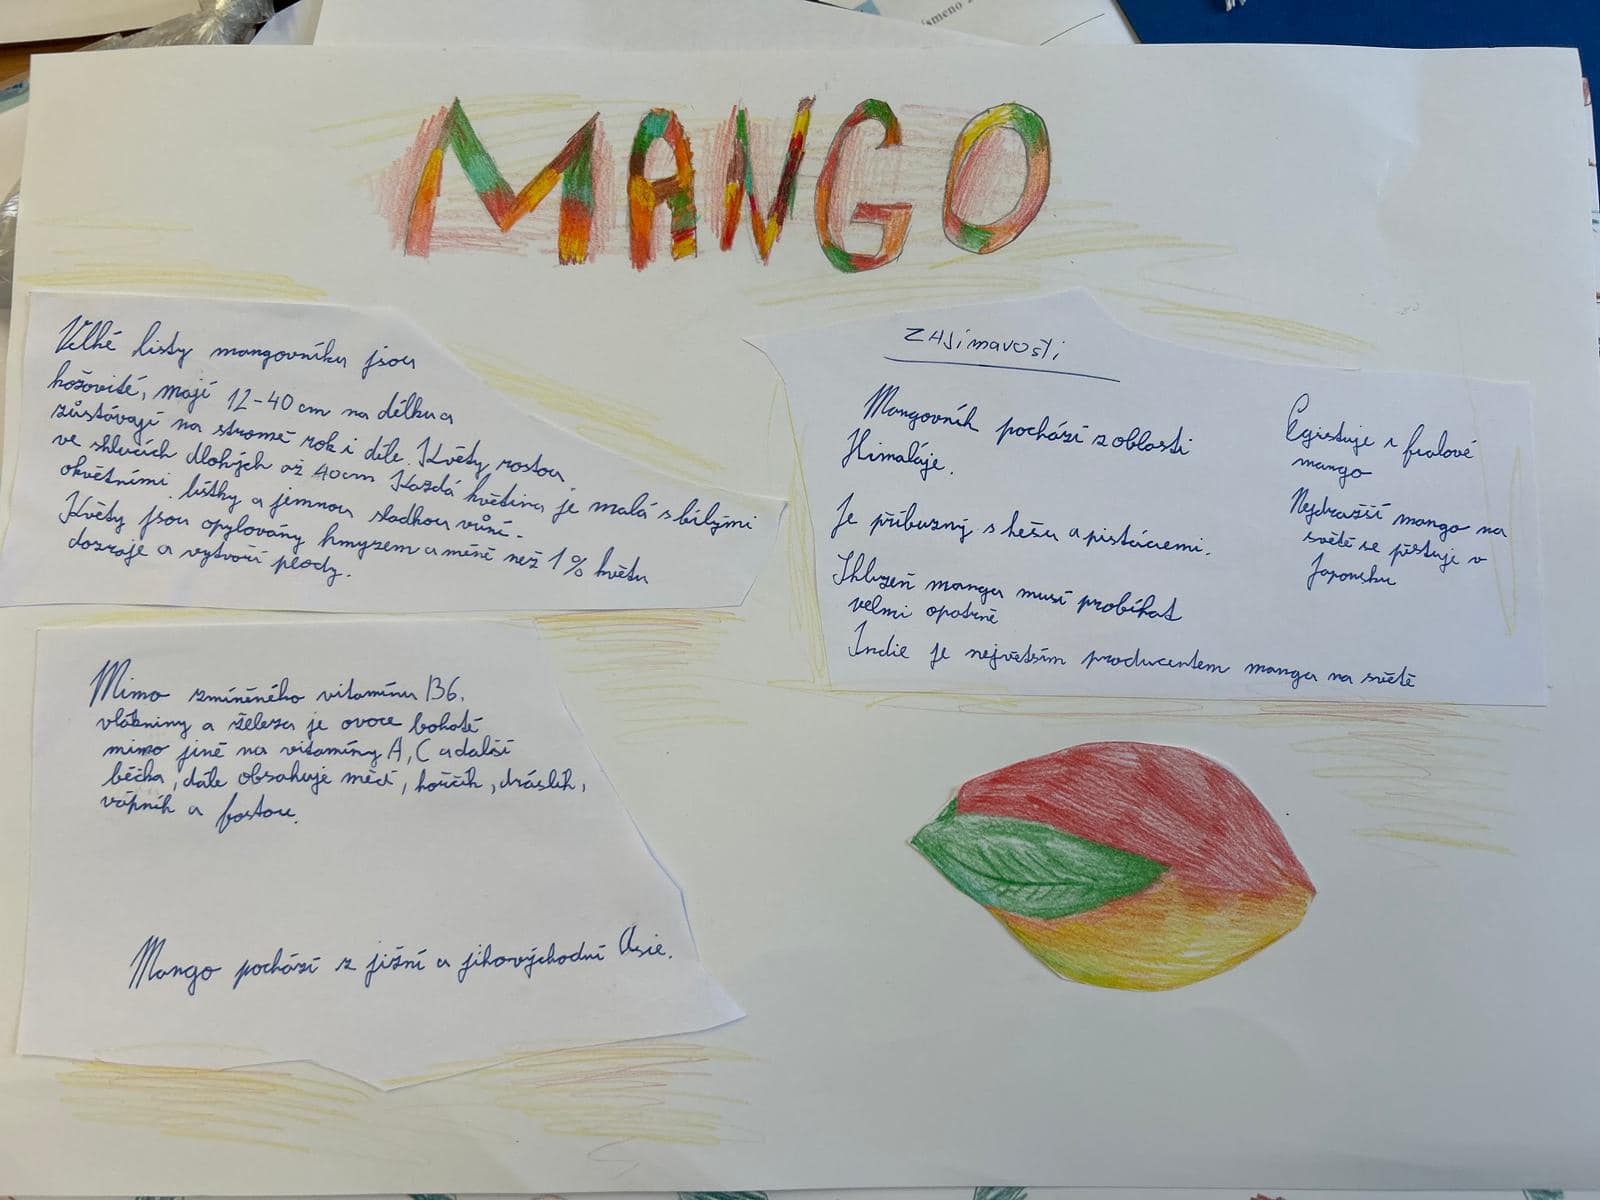 MANGO
Velké listy mangovníku jsou
kožovité, mají 12-40 cm na délku a
zůstávají na stromě rok i déle. Květy rostou
ve shlucích dlouhých až 40cm Každá květina je malá s bílými
okvětními lístky a jemnou sladkou vůní.
Květy jsou opylovány hmyzem a méně než 1% květu
dozraje a vytvoří plody.
Mimo zmíněného vitamínu B6,
vlákniny a železa je ovoce bohaté
mimo jiné na vitamíny A, C a další
béčka, dále obsahuje měď, hořčík, draslík,
vápník a fosfor.
Mango pochází z jižní a jihovýchodní Asie.
ZAJímavosti
Mangovník pochází z oblasti
Himaláje.
Je příbuzný s kešu a pistáciemi.
Sklizeň manga musí probíhat
velmi opatrně
Indie je největším producentem manga na světě
Egistuje i fialové
mango
Nejdražší mango na
světě se pěstuje v
Japonsku